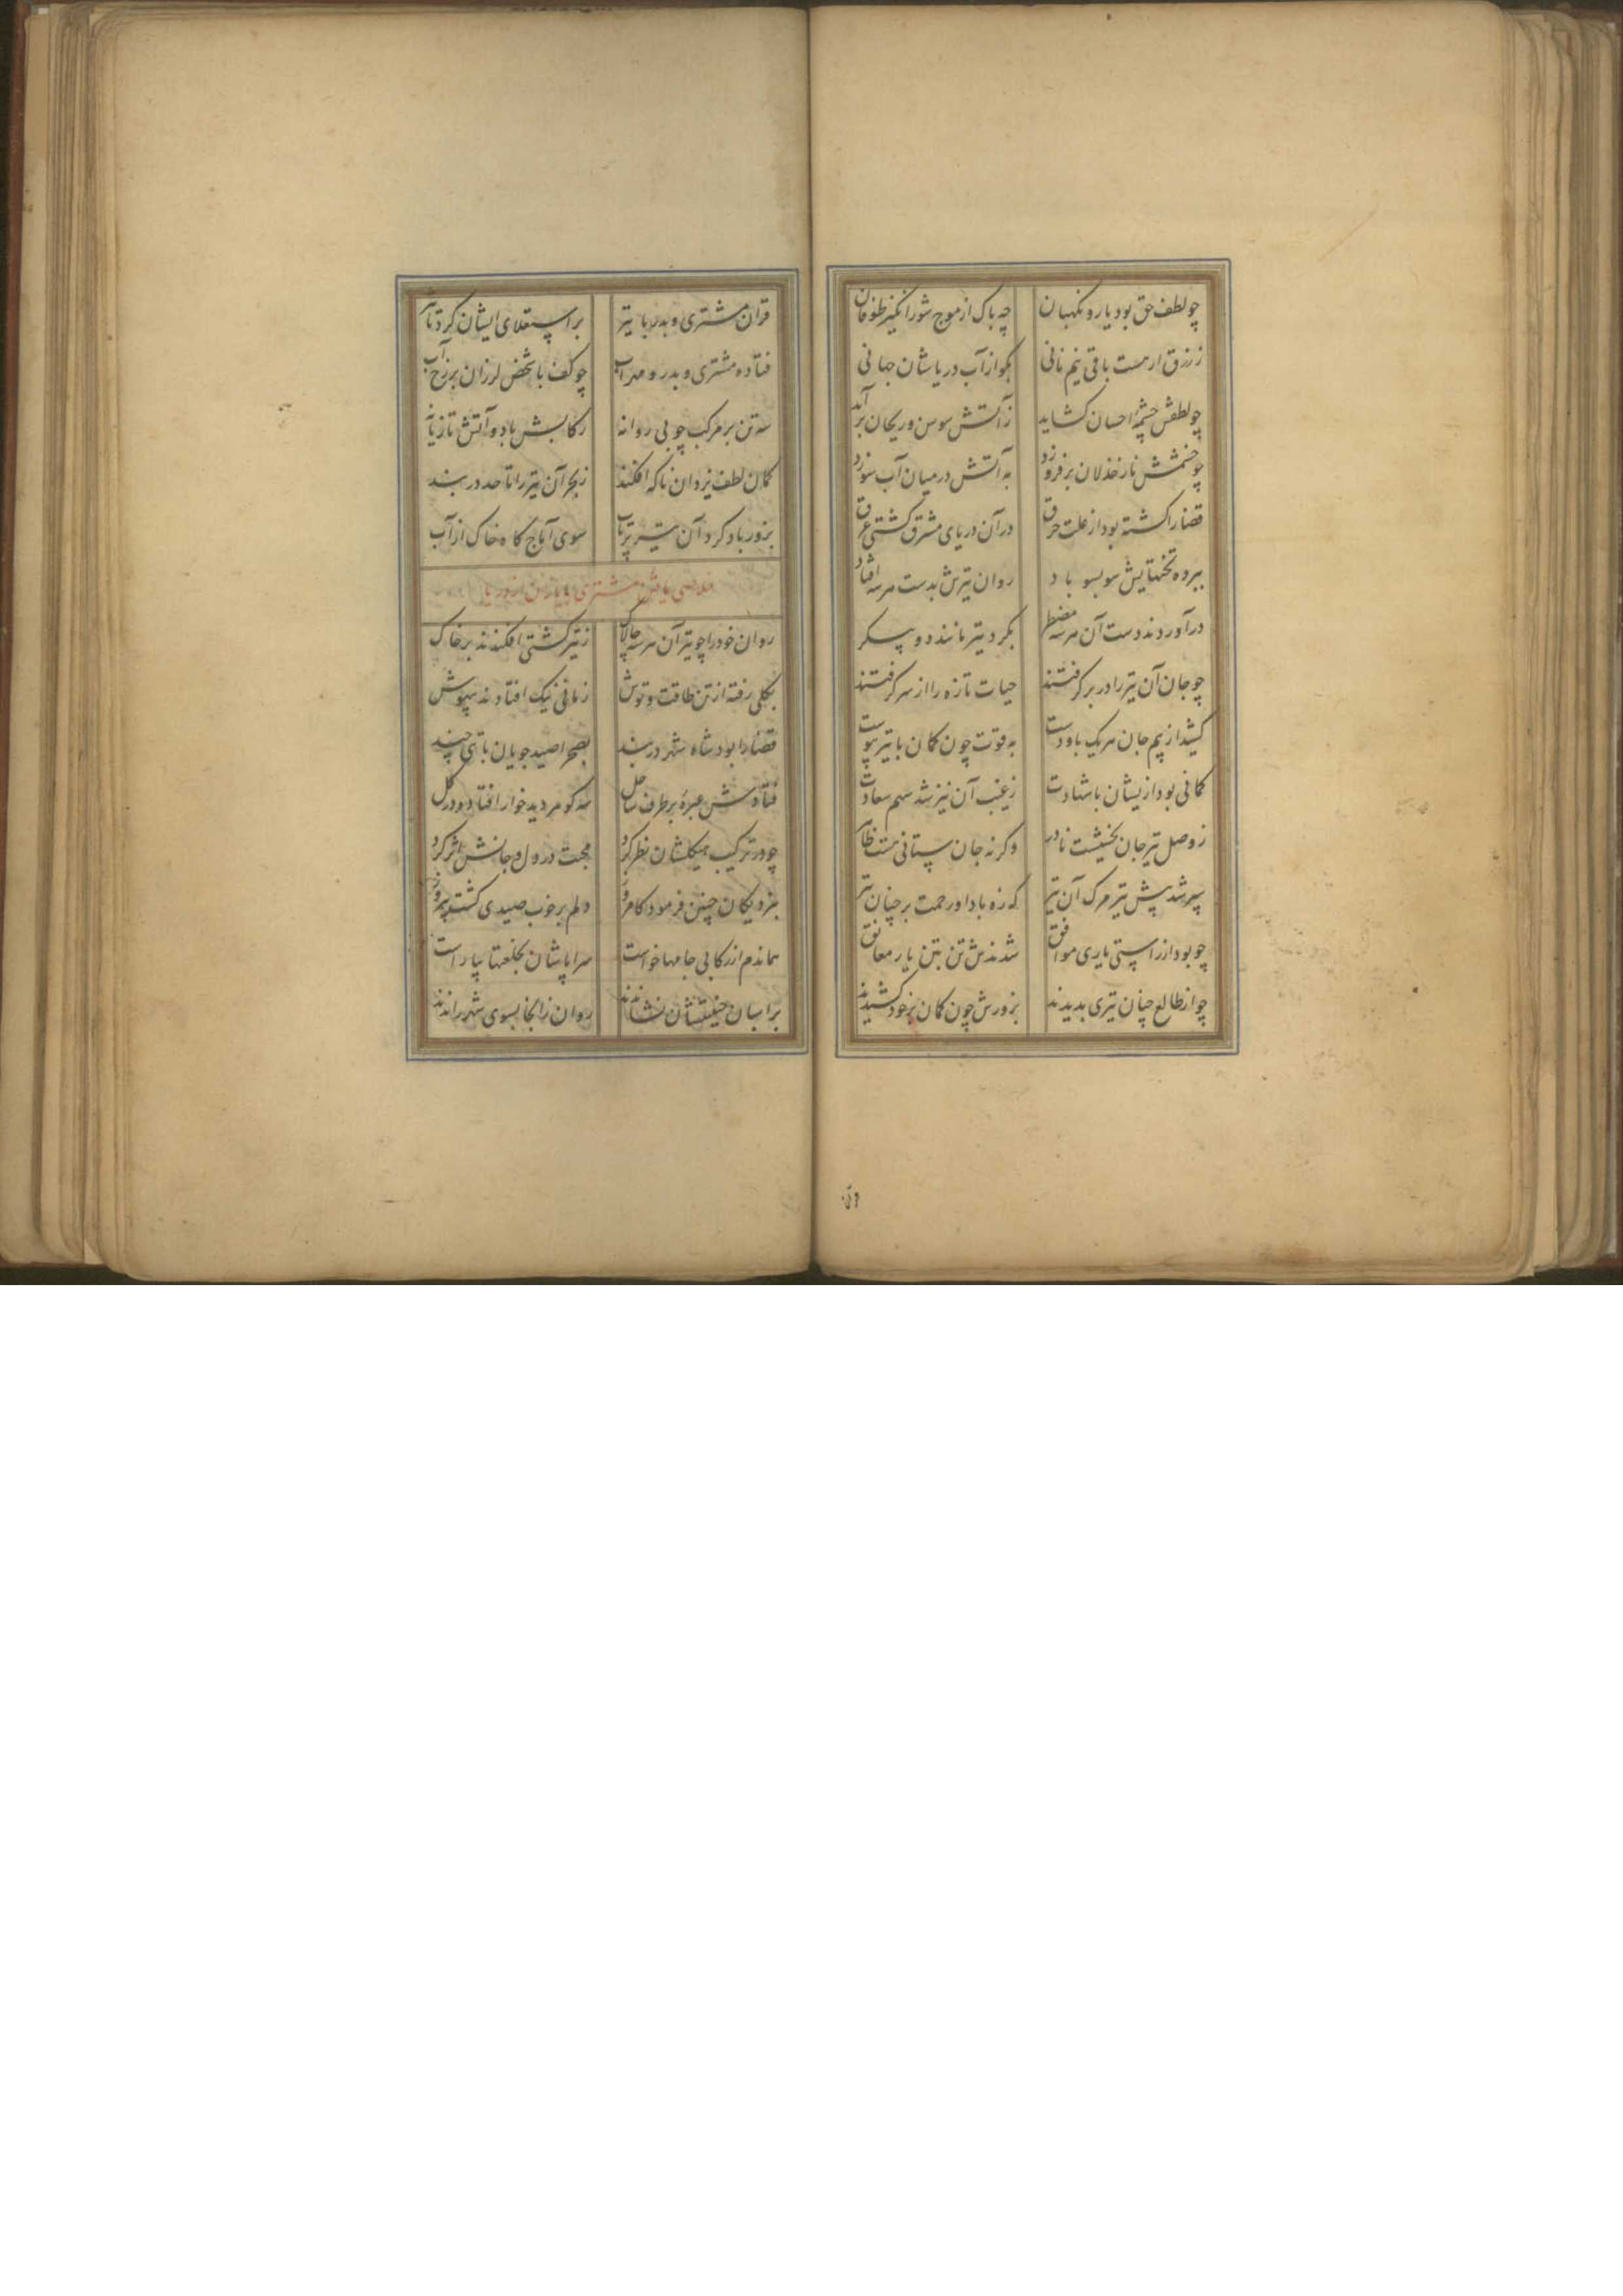 چو لطف حق بود یار و نگهبان چه باک از موج شورانگیز طوفان
ز رزق ار هست باقی نیم نانی بگو از آب دریا شان جهانی
چو لطفش چشمهٔ احسان کشاید ز آتش سوسن و ریحان برآید
چو خشمش نار خذلان بر فروزد به آتش در میان آب سوزد
قضا را کشته بود از علت حرق در آن دریای مشرق کشتی غرق
ببرده تختهایش سو بسو باد روان تیرش بدست هر سه افتاد
در آوردند دست آن هر سه مضطر بکرد تیر مانند دو پیکر
چو جان آن تیر را در بر گرفتند حیات تازه را از سر گرفتند
کشید از بیم جان هر یک باو دست به قوت چون کمان با تیر پیوست
کمانی بود ازیشان با شهادت ز غیب آن نیز شد سهم سعادت
ز وصل تیر جان بخشیست نادر وگرنه جان ستانی هست ظاهر
سپر شد پیش تیر مرگ آن تیر که زه بادا و رحمت بر چنان تیر
چو بود از راستی یاری موافق شدندش تن بتن یار معانق
چو از طالع چنان تیری بدیدند بزورش چون کمان بر خود کشیدند
قران
قران مشتری و بدر با تیر بر استعلای ایشان کرد تاثیر
فتاده مشتری و بدر و مهراب چو کف با شخص لرزان بر رخ آب
سه تن بر مرکب چوبی روانه رکابش باد و آتش تازیانه
کمان لطف یزدان ناکه افکند ز بحر آن تیر را تا حد دربند
بزور باد کرد آن تیر پرتاب سوی آماج کاه خاک از آب
خلاصی یافتن مشتری با یاران از دریا
روان خود را چو تیر آن هر سه چالاک ز تیر کشتی افکندند بر خاک
بکلی رفته از تن طاقت و توش زمانی نیک افتادند بیهوش
قضا را بود شاه شهر دربند بصحرا صید جویان با تنی چند
فتادش عبره بر طرف ساحل سه کوهر دید خوار افتاده در گل
چو در ترکیب هیکلشان نظر کرد محبت در دل و جانش اثر کرد
بنزدیکان چنین فرمود کامروز دلم بر خوب صیدی کشت پیروز
هماندم از رکابی جامها خواست سراپاشان بخلعتها بیاراست
بر اسبان جنیبتشان نشاندند روان زانجا بسوی شهر راندند